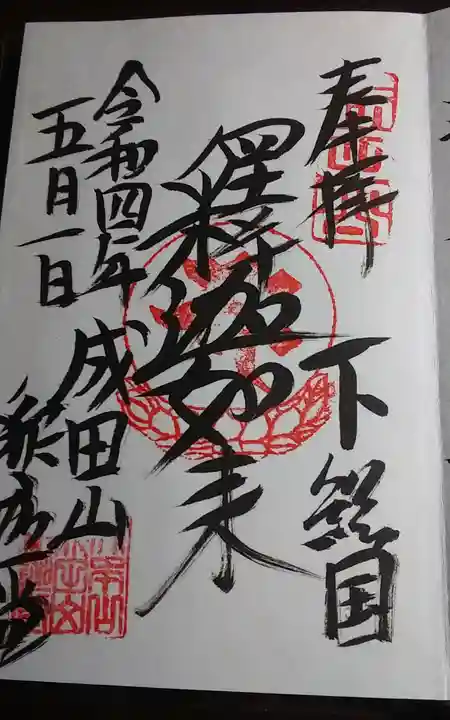 奉拝
下総国
釋迦如来
令和四年
五月一日
成田山